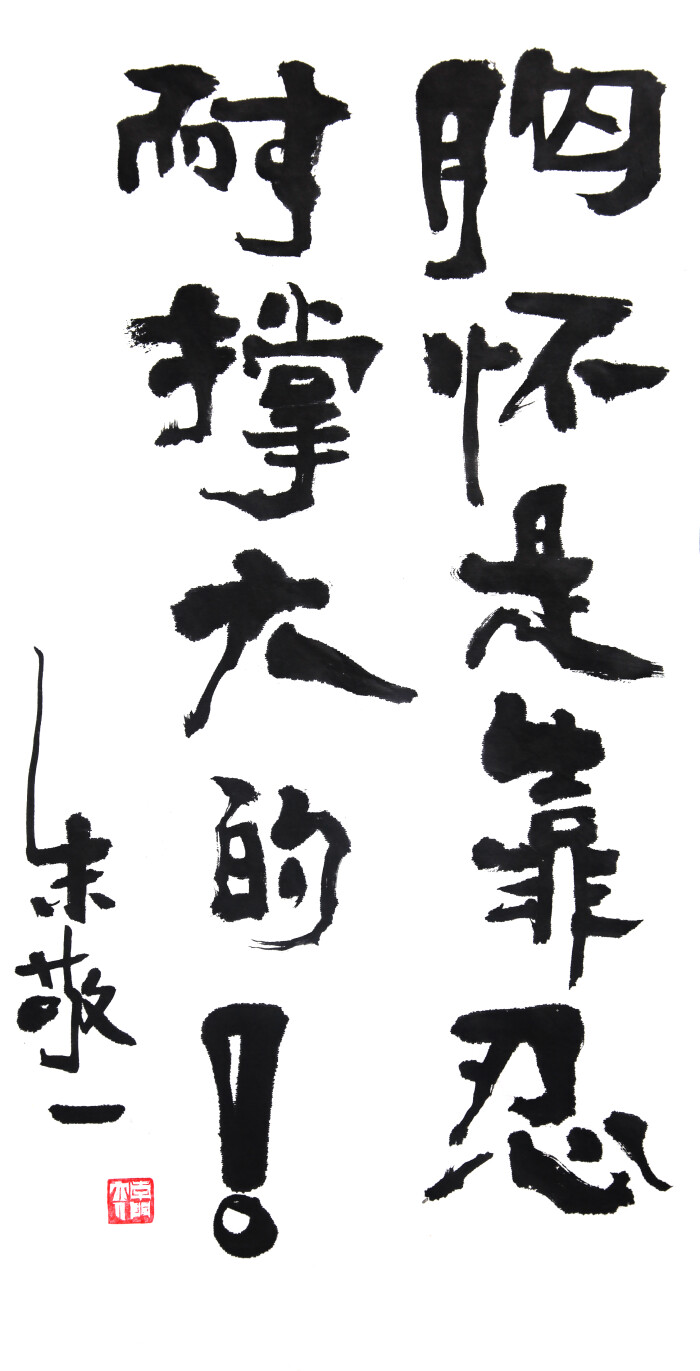 胸怀是靠忍
耐撑大的！
朱敬一